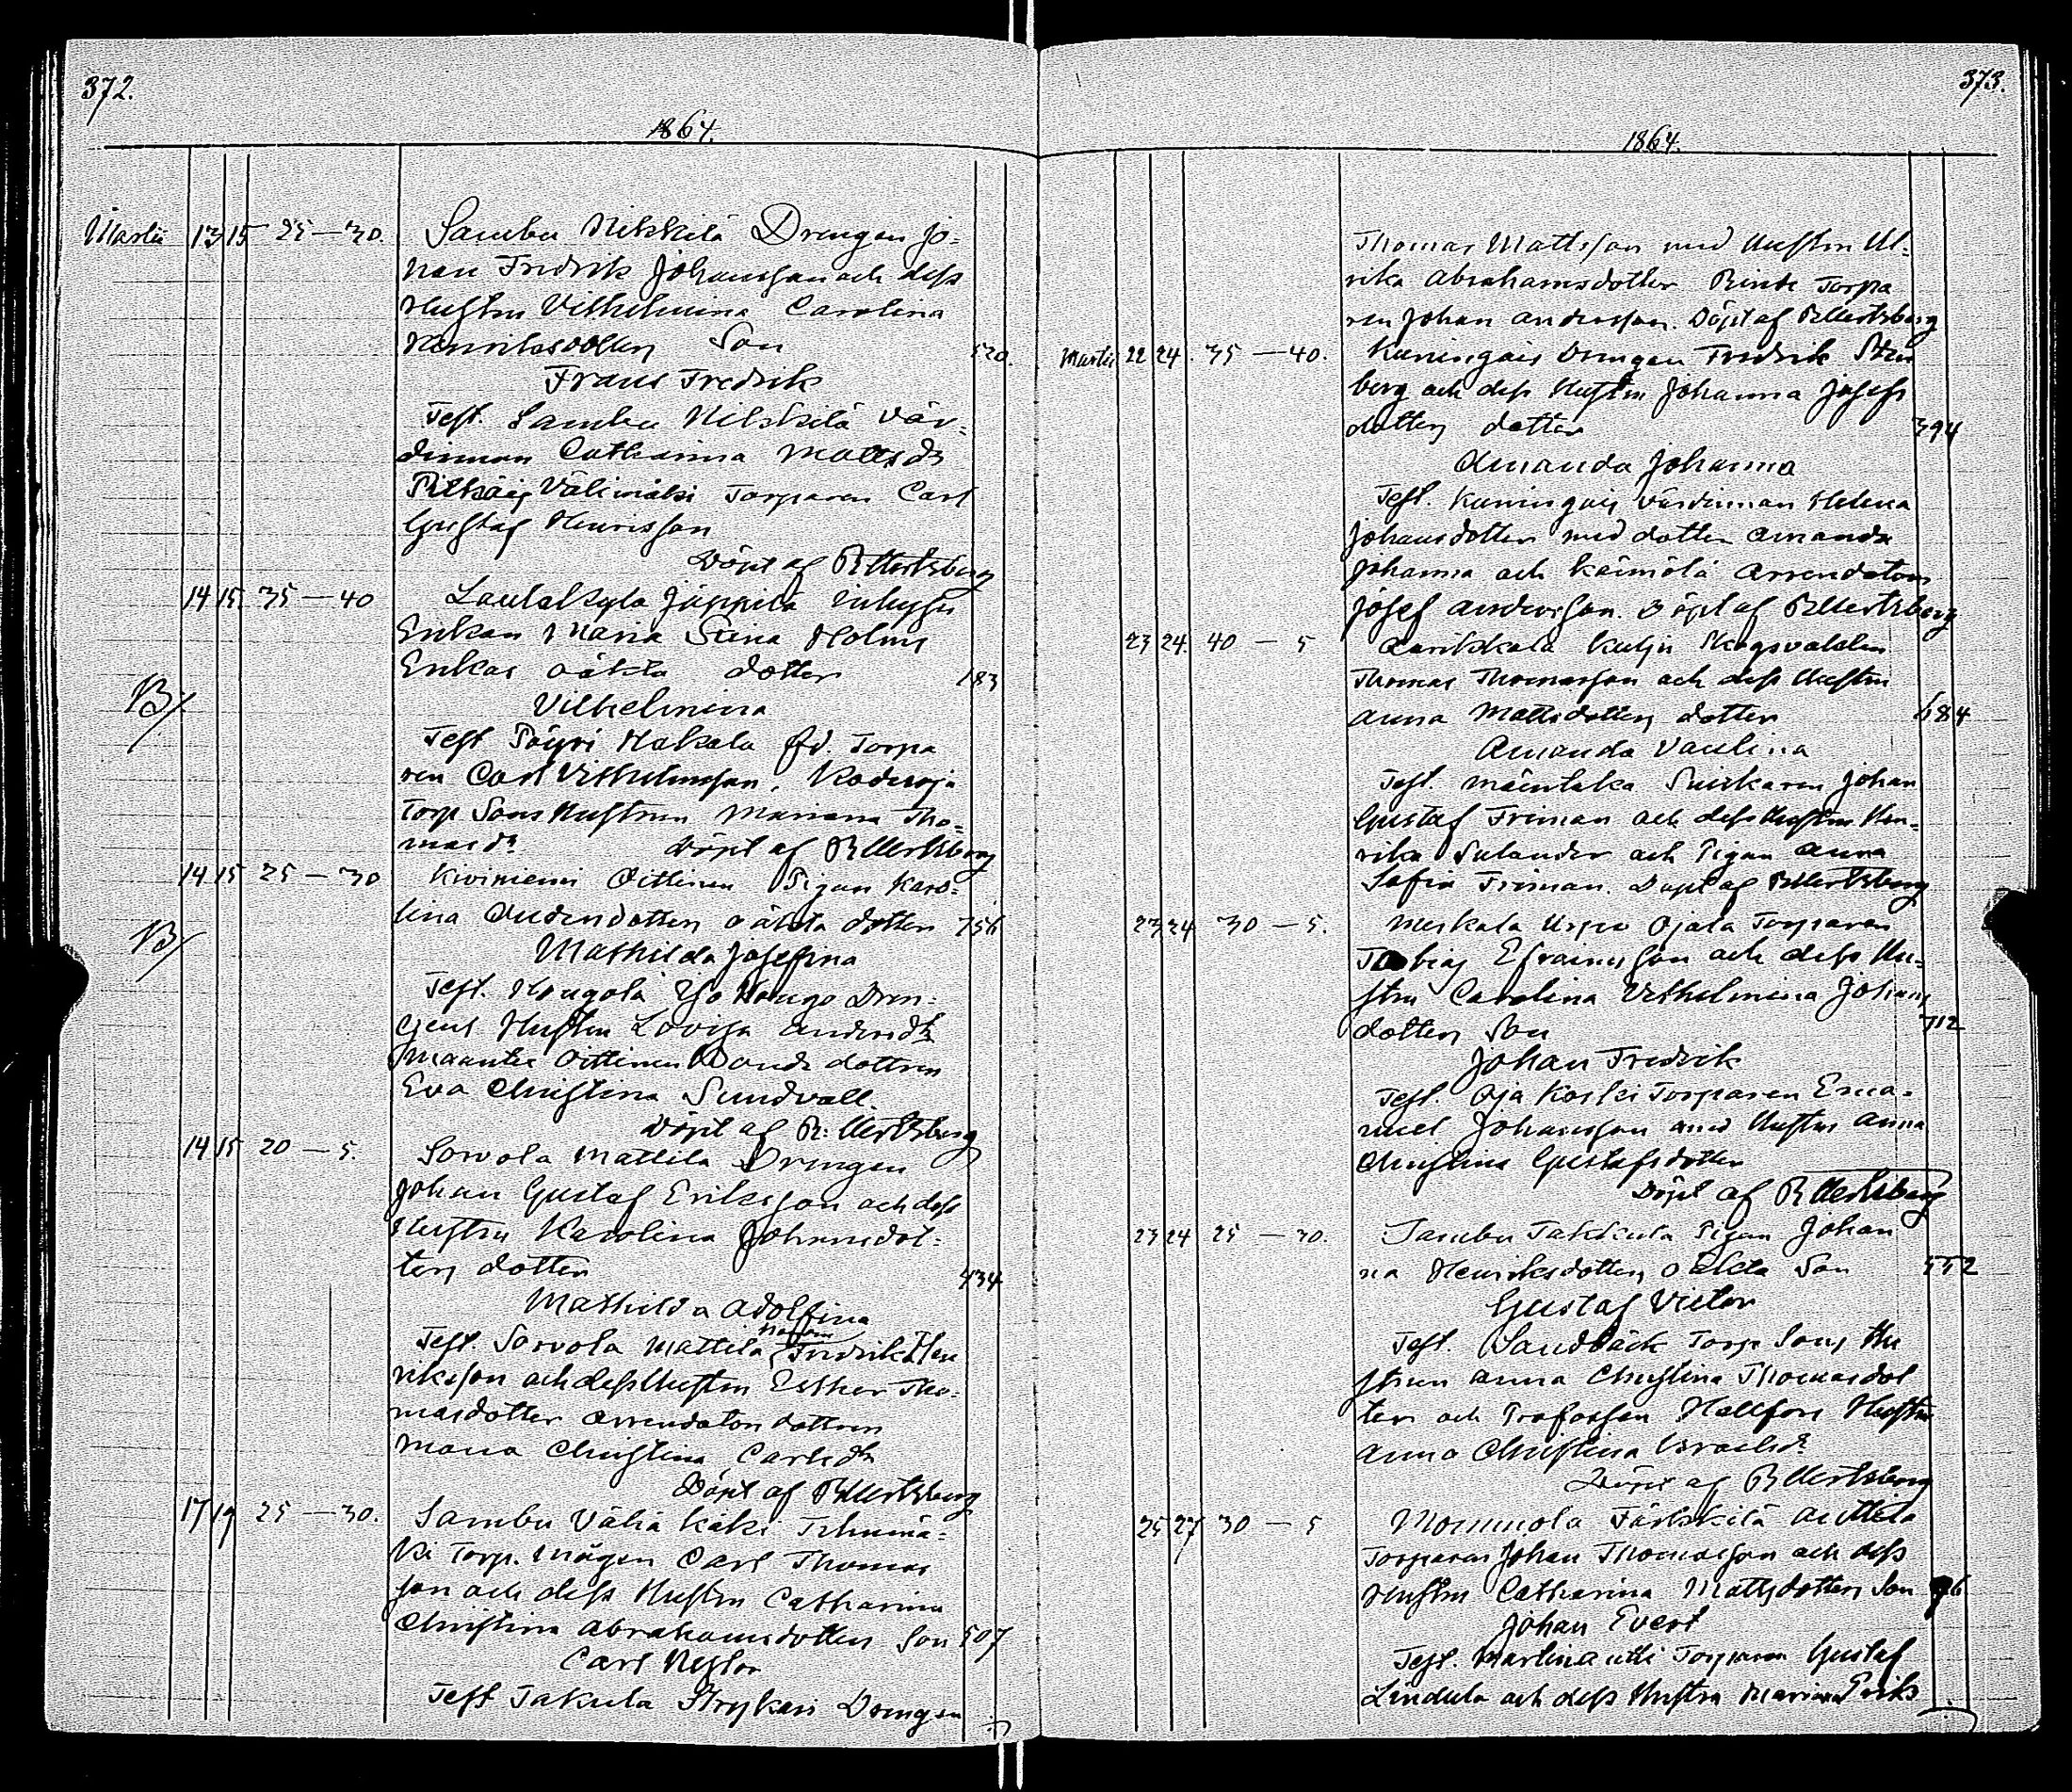 372.
1864.
Martii 13 15 25—30. Sambu Nikkilä Drengen Jo-
han Fredrik Johansson och dess
Hustru Vilhelmina Carolina
Henriksdotters Son 520.
Frans Fredrik
Test. Sambu Nikkilä Vär-
dinnan Catharina Mattsdr
Välimäki Torparen Carl
Gustaf Henrisson
Döpt af R Mertzberg
14 15. 35—40 Lautakyla Jäppilä Inhyses
Enkan Maria Stina Holms
Enkas oäkta dotter 183
B/
Vilhelmina
Test Pöyri Hakala fd. Torpa
ren Carl Vilhelmsson,
Torp Sons Hustrun Mariana Tho-
masdr Döpt af R Mertzberg
14 15 25—30 Kiviniemi Oittinen Pigan Karo-
lina dotters oäkta dotter 756
B/
Mathilda Josefina
Test. Yso Hongo Dren-
gens Hustru Lovisa Andersdr
Oittinen Bonde dottren
Eva Christina Sundvall.
Döpt af R: Mertzberg
14 15 20—5. Sorvola Mattila Drengen
Johan Gustaf Eriksson och dess
Hustru Karolina Johansdot-
ters dotter 434
Mathilda Adolfina
Test. Sorvola Mattila Fredrik Hen
riksson och dess Hustru Esther Tho-
masdotter Arrendator dottren
Maria Christina Carlsdr
Döpt af R Mertzberg
17 19 25—30. Sambu Vähä Käki
ki Torp. Mågen Carl Thomas
son och dess Hustru Catharina
Christina Abrahamsdotters Son 507
Carl Nestor
Test Takula Strykari Drengen
373.
1864.
Thomas Mattsson med Hustru Ul-
rika Abrahamsdotter Torpa
ren Johan Andersson. Döpt af R Mertzberg
Martii 22 24. 35—40. Kuningais Drengen Fredrik Sten
berg och dess Hustru Johanna Josefs
dotters dotter 394
Amanda Johanna
Test. Kuningais Värdinnan Helena
Johansdotter med dotter Amanda
Johanna och Arrendatorn
Josef Andersson. Döpt af R Mertzberg
23 24. 40—5 Kulju Skogsvakten
Thomas Thomasson och dess Hustru
Anna Mattsdotters dotter 684
Amanda Paulina
Test. Mäentaka Snickaren Johan
Gustaf Friman och dess Hustru Hen-
rika Sulander och Pigan Anna
Sofia Friman. Döpt af R Mertzberg
23 24 30—5. Ojala Torparen
Tobias Efraimsson och dess Hu-
stru Carolina Vilhelmina Johans
dotters Son 712
Johan Fredrik
Test. Oja Koski Torparen Ema-
nuel Johansson med Hustru Anna
Christina Gustafsdotter
Döpt af R Mertzberg
23 24 25—30. Sambu Takkula Pigan Johan
na Henriksdotters oäkta Son 552
Gustaf Victor
Test. Sandbäck Torp Sons Hu
strun Anna Christina Thomasdot
ter och Profossen Hellfors Hustru
Anna Christina Israelsdr
Döpt af R Mertzberg
25 27 30—5 Mommola Anttila
Torparen Johan Thomasson och dess
Hustru Catharina Mattsdotters Son 96
Johan Evert
Test. Torparen Gustaf
Lindula och dess Hustru Mariana Eriks